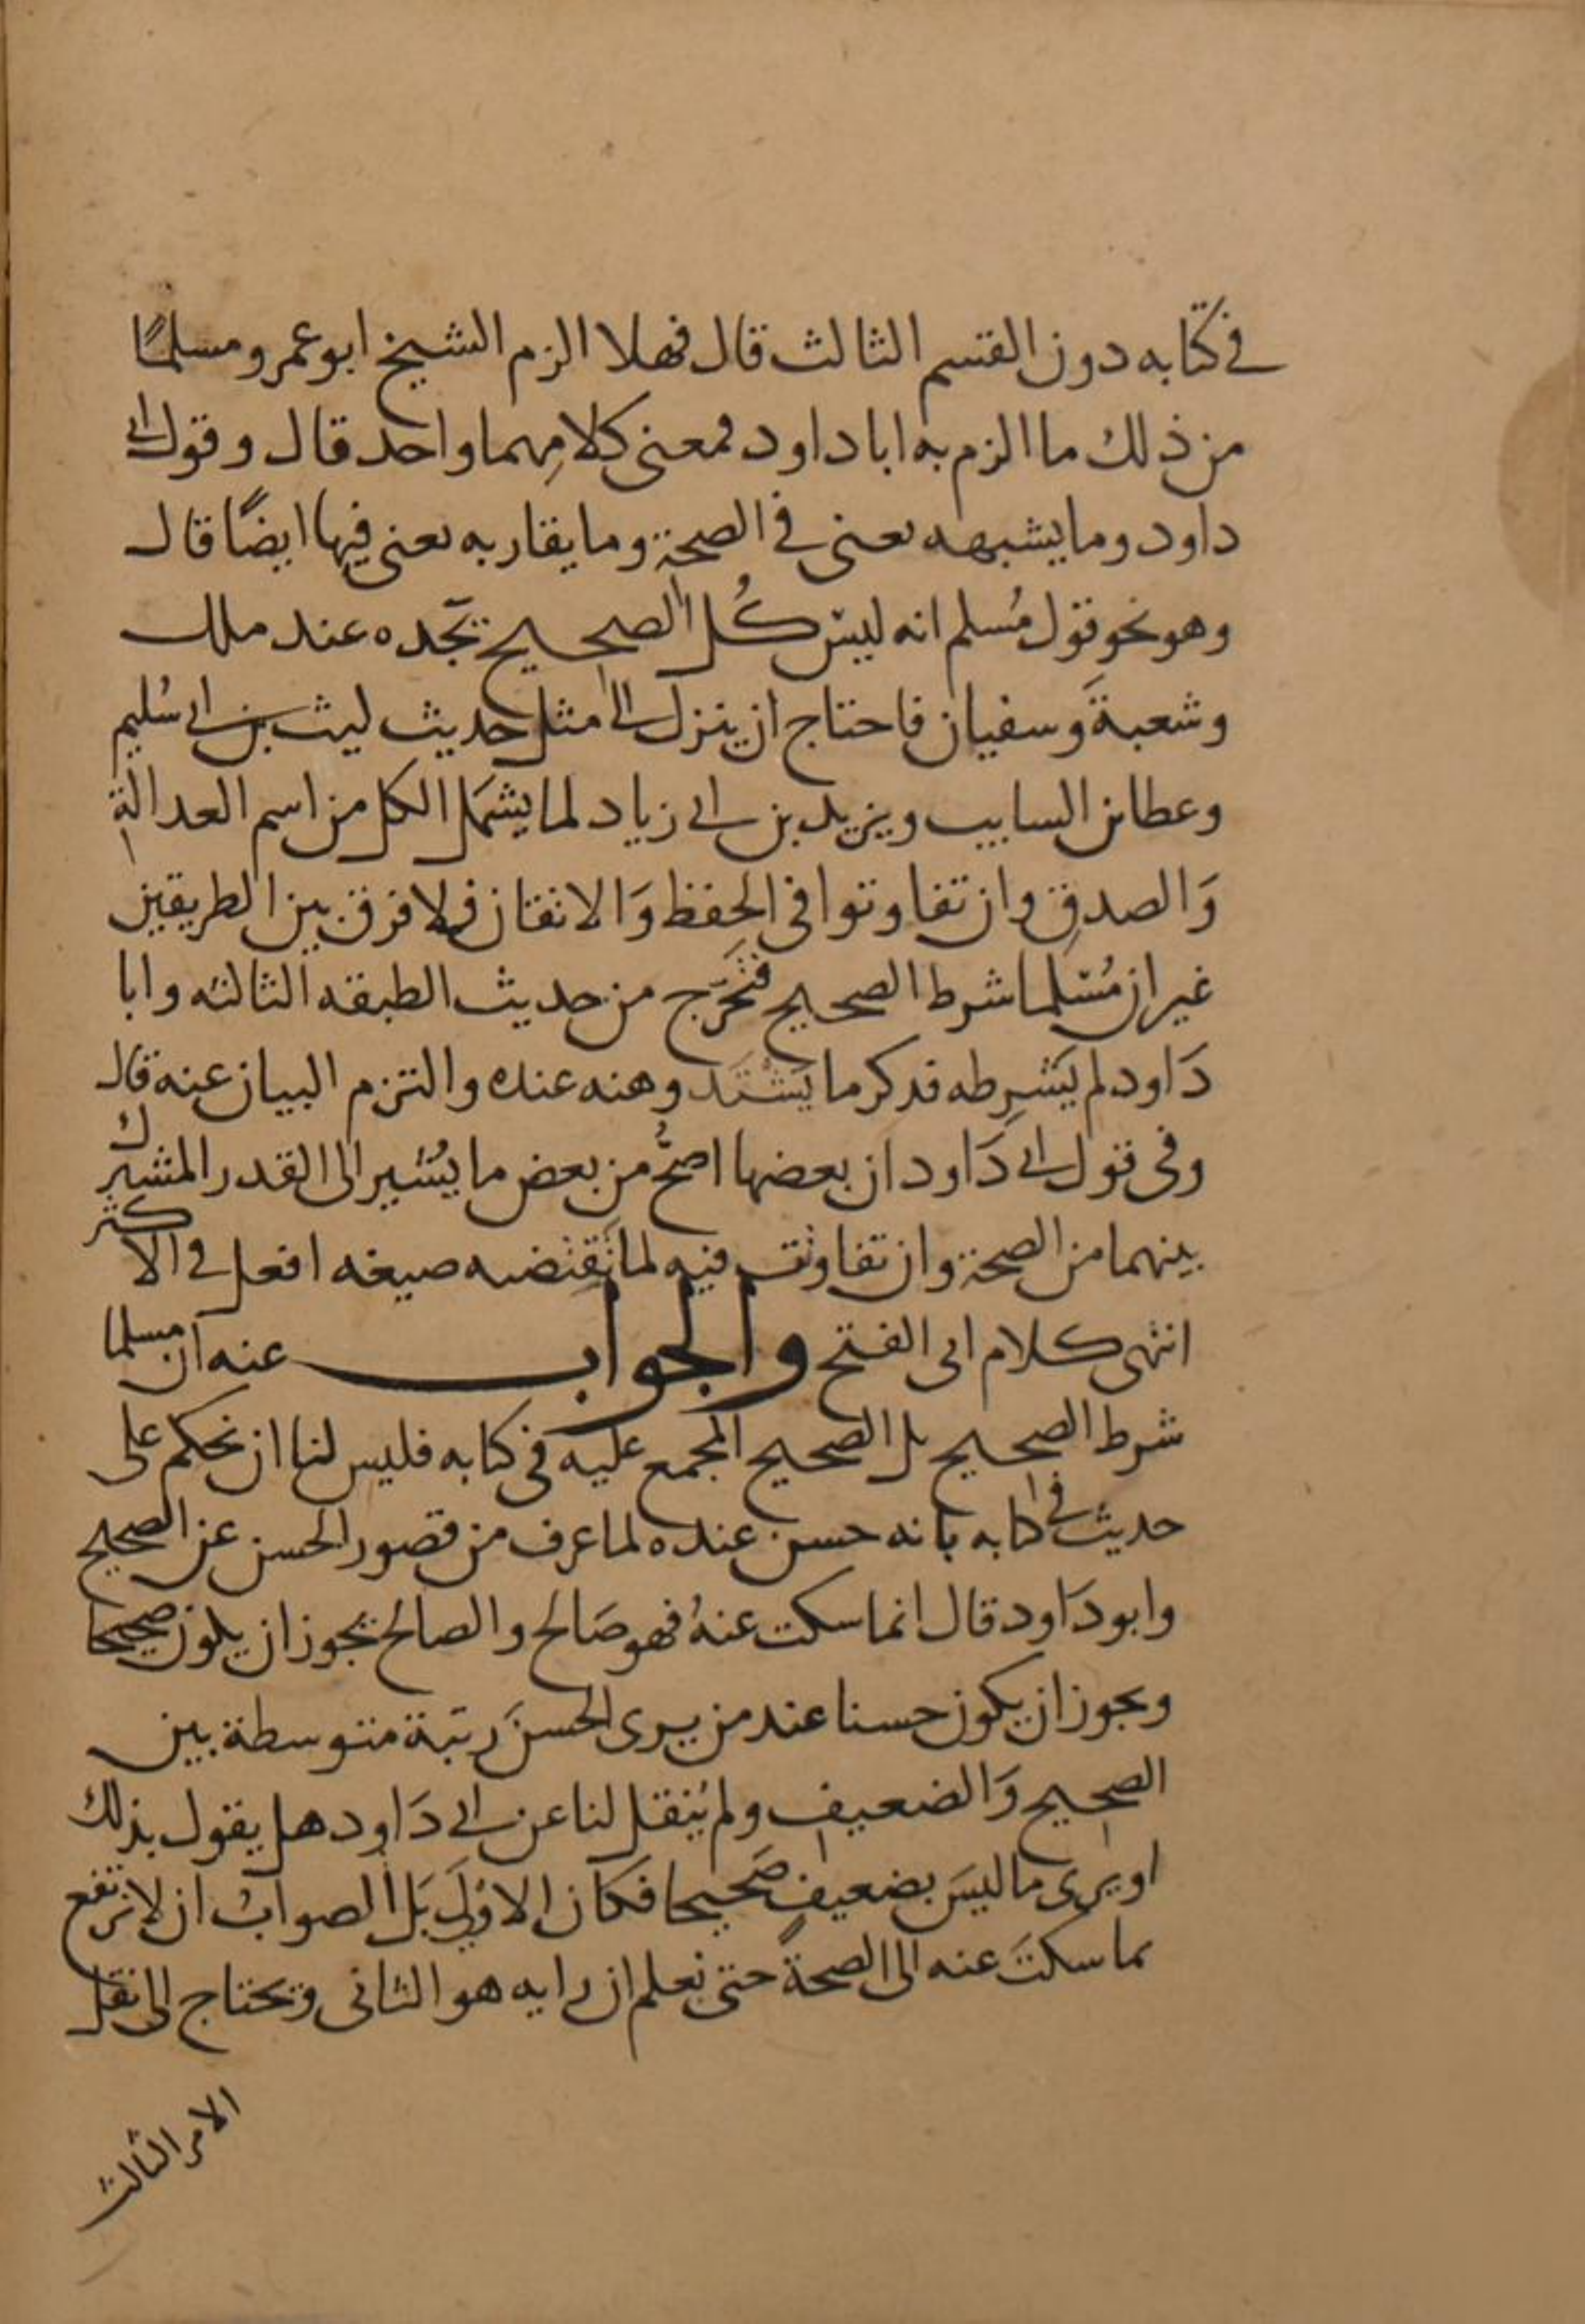 في كتابه دون القسم الثالث قال فهلا الزم الشيخ ابو عمرو مسلمًا
من ذلك ما الزم به ابا داود فمعنى كلامِهما واحد قال وقول ابى
داود وما يشبهه يعنى في الصحة وما يقاربه يعنى فيها ايضًا قال
وهو نحو قول مُسلم انه ليس كُل الصحيح تجده عند ملك
وشعبةَ وسفيان فاحتاج ان ينزل الى مثل حديث ليث بن ابى سُليم
وعطا بن السايب ويزيد بن ابى زياد لما يشمَل الكل من اسم العدالةِ
وَالصدقِ وان تفاوتوا في الحفظ وَالاتقان فلا فرق بين الطريقين
غير ان مُسلما شرط الصحيح فتحَرّج من حديث الطبقه الثالثه وابا
دَاود لم يَشرطه فذكر ما يَشْتَد وهنه عنده والتزم البيان عنه قال
وفى قول ابى دَاود ان بعضها اصحُّ من بعض ما يُشير الى القدر المشترك
بينهما من الصحة وان تفاوتت فيه لما تقتضيه صيغه افعل في الاكثر
انتهى كلام ابى الفتح والجواب عنه ان مسلما
شرط الصحيح بل الصحيح المجمع عليه في كتابه فليس لنا ان نحكم على
حديث في كتابه بانه حسن عنده لما عرف من قصور الحسن عن الصحيح
وابو دَاود قال انما سكت عنهُ فهو صَالح والصالح يجوز ان يكون صحيحا
ويجوز ان يكون حسنا عند من يرى الحسنَ رتبة متوسطة بين
الصحيح وَالضعيف ولم يُنقل لنا عن ابى دَاود هل يقول بذلك
او يرى ما ليسَ بضعيفٍ صَحيحا فكان الاوْلَى بَل الصواب ان لا نرتفع
بما سكتَ عنه الى الصحةً حتى نعلم ان رايه هو الثانى ويحتاج الى نقل
الامر الثالث